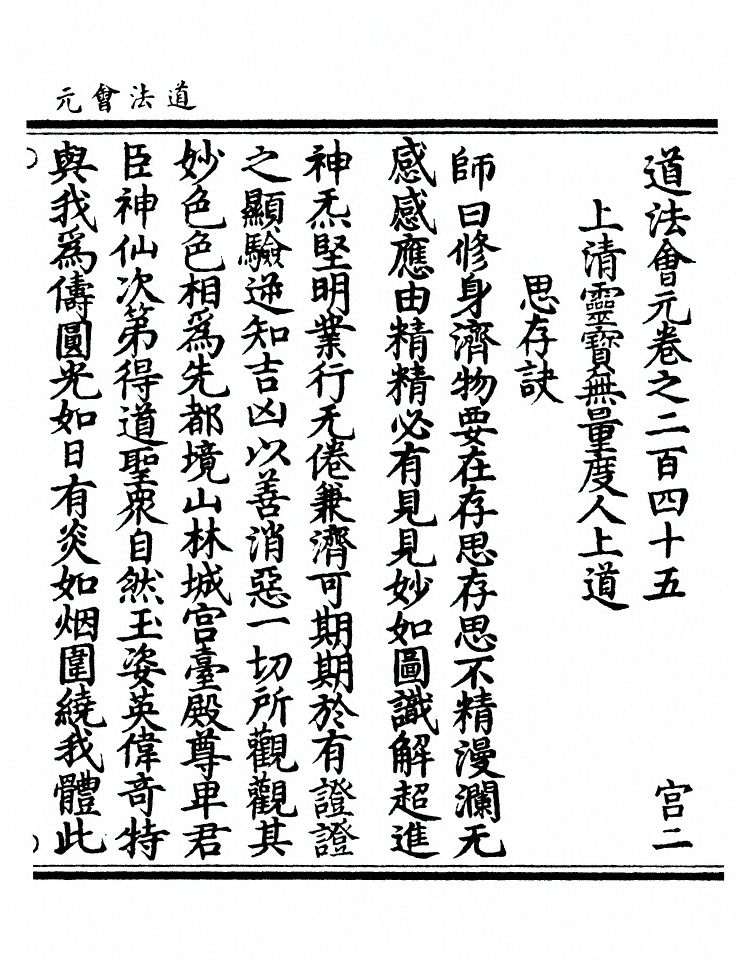 道法會元
道法會元卷之二百四十五 宫二
上清靈寶無量度人上道
思存訣
師曰修身濟物要在存思存思不精漫瀾无
感感應由精精必有見見妙如圖識解超進
神炁堅明業行无倦兼濟可期期於有證證
之顯驗逆知吉凶以善消惡一切所觀觀其
妙色色相爲先都境山林城宫臺殿尊卑君
臣神仙次第得道聖衆自然玉姿英偉竒特
與我爲儔圓光如日有炎如烟圍繞我體此